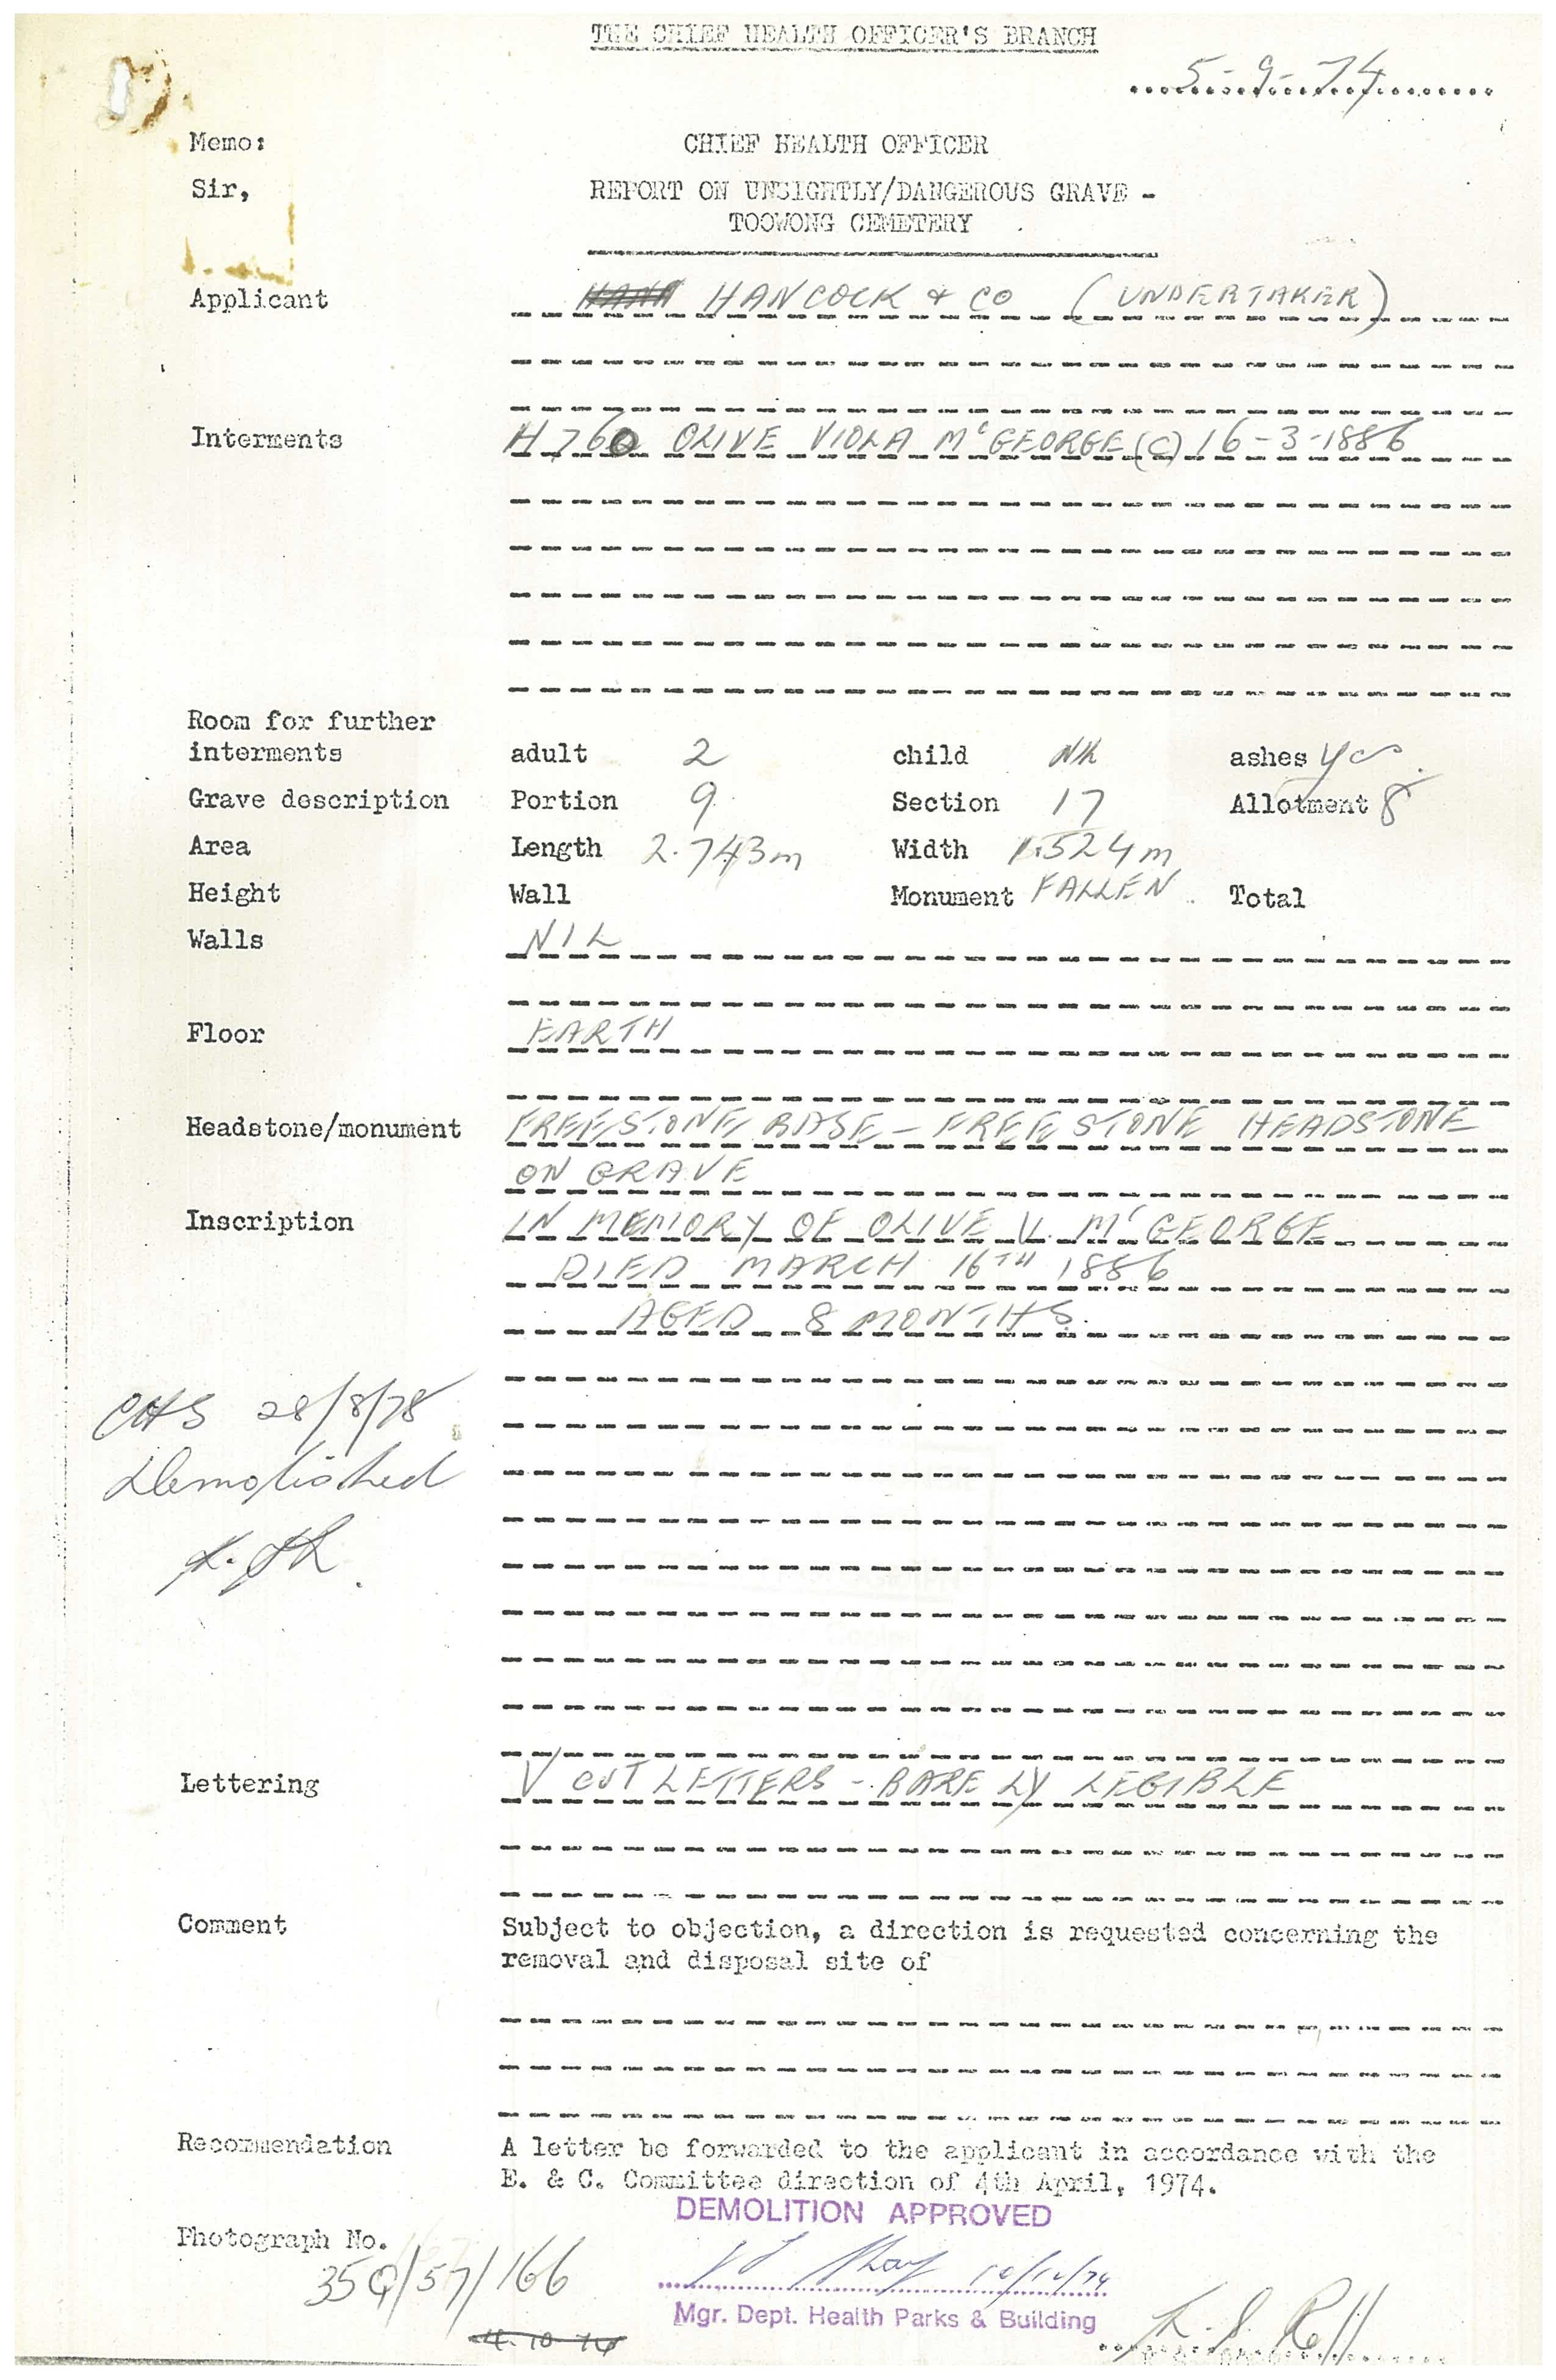 THE CHIEF HEALTH OFFICER'S BRANCH
5-9-74
Memo: CHIEF HEALTH OFFICER
Sir, REPORT ON UNSIGHTLY/DANGEROUS GRAVE -
TOOWONG CEMETERY
Applicant HANCOCK & CO (UNDERTAKER)
Interments H760 OLIVE VIOLA McGEORGE (C) 16-3-1886
Room for further
interments adult 2 child Nil ashes yes.
Grave description Portion 9 Section 17 Allotment 8
Area Length 2.743m Width 1.524m
Height Wall Monument FALLEN Total
Walls NIL
Floor EARTH
Headstone/monument FREESTONE BASE - FREESTONE HEADSTONE
ON GRAVE
Inscription IN MEMORY OF OLIVE V. McGEORGE
DIED MARCH 16TH 1886
AGED 8 MONTHS.
CHS 28/8/78
Demolished
Lettering V CUT LETTERS - BARELY LEGIBLE
Comment Subject to objection, a direction is requested concerning the
removal and disposal site of
Recommendation A letter be forwarded to the applicant in accordance with the
E. & C. Committee direction of 4th April, 1974.
DEMOLITION APPROVED
Photograph No.
35Q/57/166
10/12/74
Mgr. Dept. Health Parks & Building
4.10.74